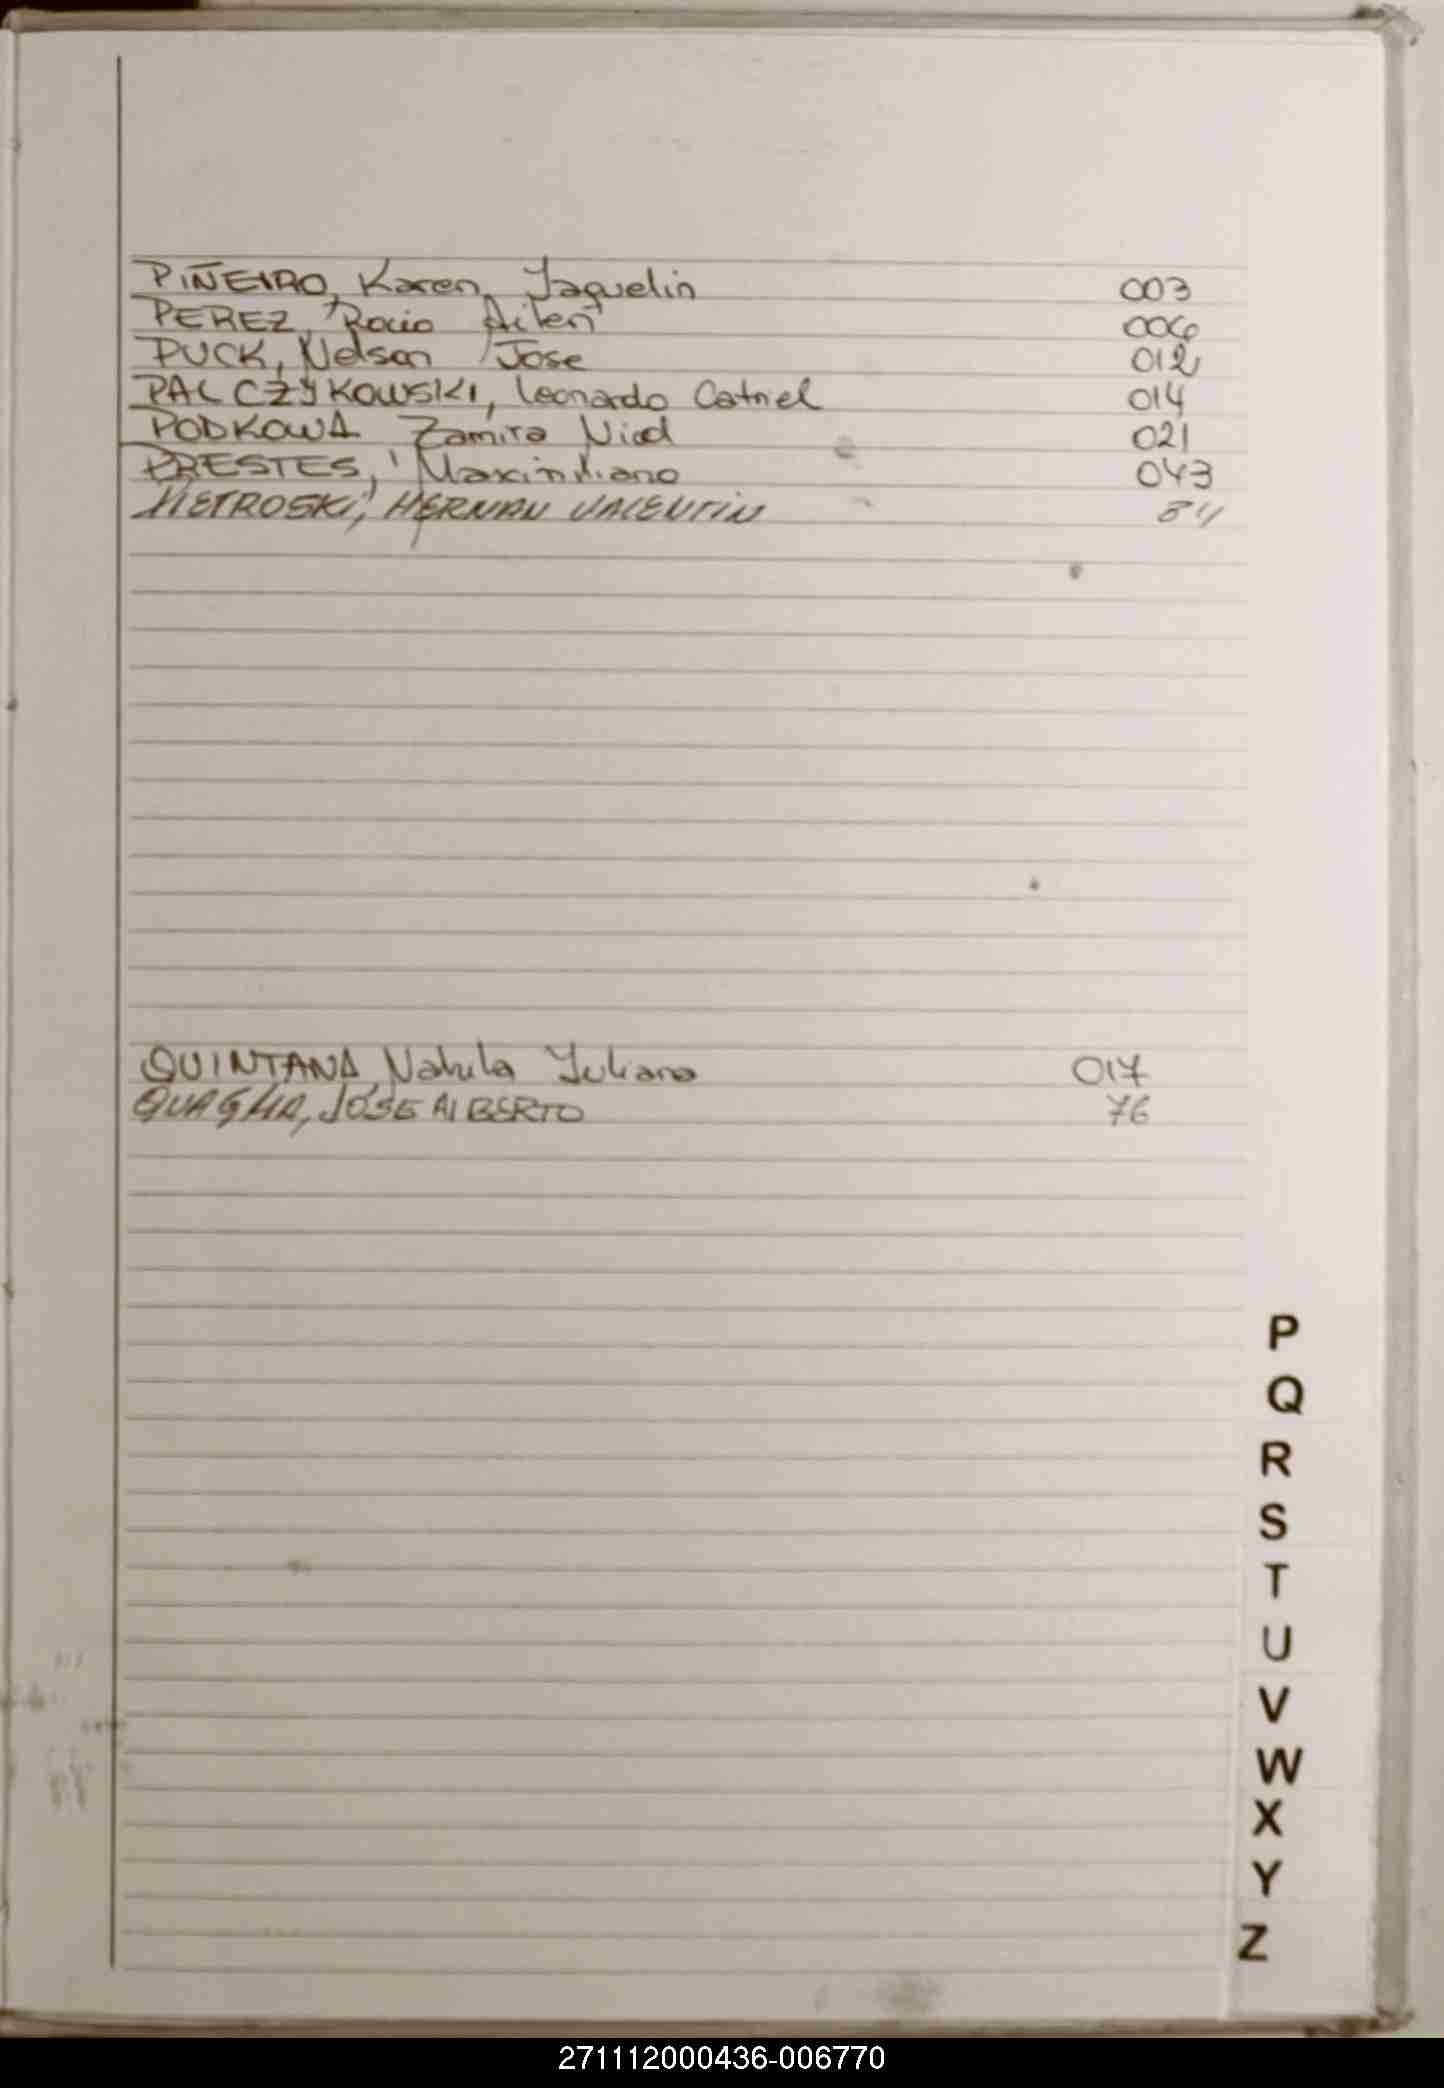 PIÑEIRO, Karen Jaquelin 003
PEREZ, Rocio Ailen 006
PUCK, Nelson Jose 012
PALCZYKOWSKI, Leonardo Catriel 014
PODKOWA Zamira Nicol 021
PRESTES, Maximiliano 043
PIETROSKI, HERNAN VALENTIN 84
QUINTANA, Juliana 017
QUAGLIA, JOSE ALBERTO 76
P
Q
R
S
T
U
V
W
X
Y
Z
271112000436-006770